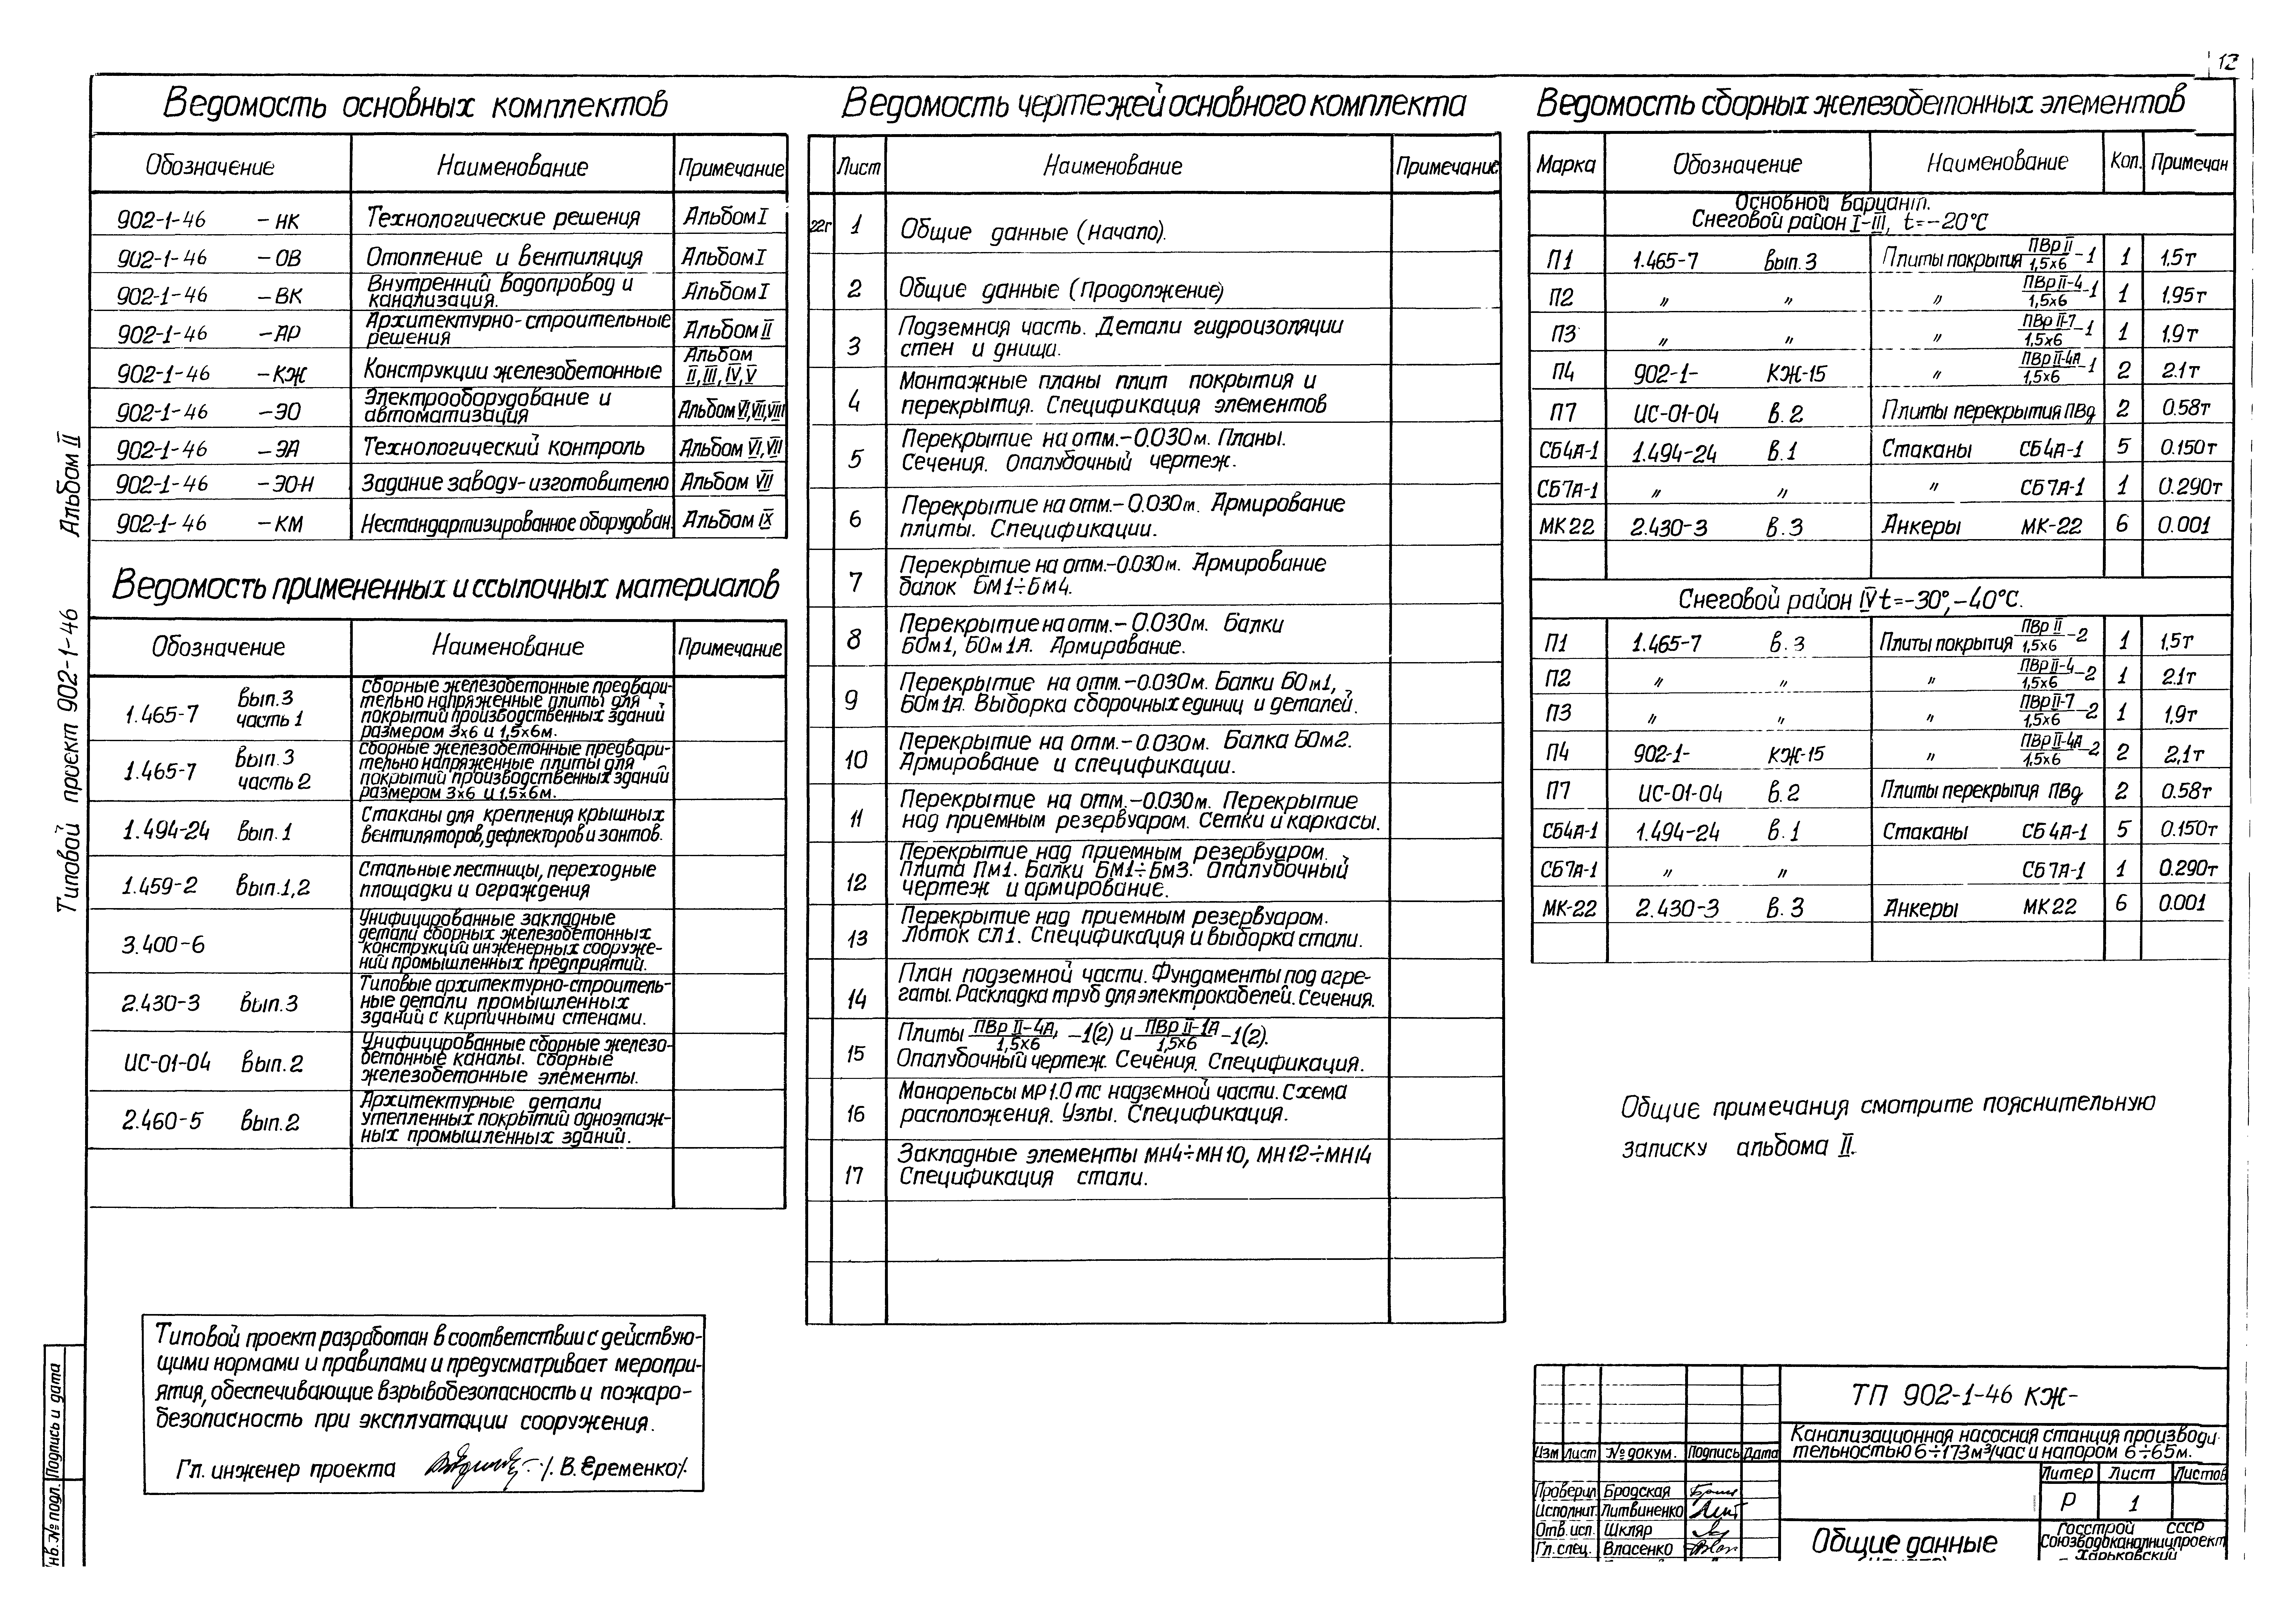 12
Альбом II
Типовой проект 902-1-46
Ведомость основных комплектов
Обозначение Наименование Примечание
902-1-46 -НК Технологические решения Альбом I
902-1-46 -ОВ Отопление и вентиляция Альбом I
902-1-46 -ВК Внутренний водопровод и
канализация. Альбом I
902-1-46 -АР Архитектурно-строительные
решения Альбом II
902-1-46 -КЖ Конструкции железобетонные Альбом
II, III, IV, V
902-1-46 -ЭО Электрооборудование и
автоматизация Альбом VI, VII, VIII
902-1-46 -ЭА Технологический контроль Альбом VI, VII
902-1-46 -ЭО-Н Задание заводу-изготовителю Альбом VII
902-1-46 -КМ Нестандартизированное оборудован. Альбом IX
Ведомость примененных и ссылочных материалов
Обозначение Наименование Примечание
1.465-7 вып.3
часть 1
Сборные железобетонные предвари-
тельно напряженные плиты для
покрытий производственных зданий
размером 3х6 и 1,5х6м.
1.465-7 вып.3
часть 2
Сборные железобетонные предвари-
тельно напряженные плиты для
покрытий производственных зданий
размером 3х6 и 1,5х6м.
1.494-24 вып.1 Стаканы для крепления крышных
вентиляторов, дефлекторов и зонтов.
1.459-2 вып.1,2 Стальные лестницы, переходные
площадки и ограждения
3.400-6 Унифицированные закладные
детали сборных железобетонных
конструкций инженерных сооруже-
ний промышленных предприятий.
2.430-3 вып.3 Типовые архитектурно-строитель-
ные детали промышленных
зданий с кирпичными стенами.
ИС-01-04 вып.2 Унифицированные сборные железо-
бетонные каналы. Сборные
железобетонные элементы.
2.460-5 вып.2 Архитектурные детали
утепленных покрытий одноэтаж-
ных промышленных зданий.
Типовой проект разработан в соответствии с действую-
щими нормами и правилами и предусматривает меропри-
ятия, обеспечивающие взрывобезопасность и пожаро-
безопасность при эксплуатации сооружения.
Гл. инженер проекта /. В. Еременко/.
Подпись и дата
нв. № подл.
Ведомость чертежей основного комплекта
Лист Наименование Примечание
22г 1 Общие данные (начало).
2 Общие данные (продолжение)
3 Подземная часть. Детали гидроизоляции
стен и днища.
4 Монтажные планы плит покрытия и
перекрытия. Спецификация элементов
5 Перекрытие на отм.-0.030м. Планы.
Сечения. Опалубочный чертеж.
6 Перекрытие на отм.-0.030м. Армирование
плиты. Спецификации.
7 Перекрытие на отм.-0.030м. Армирование
балок БМ1÷БМ4.
8 Перекрытие на отм.-0.030м. Балки
БОм1, БОм1А. Армирование.
9 Перекрытие на отм.-0.030м. Балки БОм1,
БОм1А. Выборка сборочных единиц и деталей.
10 Перекрытие на отм.-0.030м. Балка БОм2.
Армирование и спецификации.
11 Перекрытие на отм.-0.030м. Перекрытие
над приемным резервуаром. Сетки и каркасы.
12 Перекрытие над приемным резервуаром.
Плита Пм1. Балки БМ1÷БМ3. Опалубочный
чертеж и армирование.
13 Перекрытие над приемным резервуаром.
Лоток СЛ1. Спецификация и выборка стали.
14 План подземной части. Фундаменты под агре-
гаты. Раскладка труб для электрокабелей. Сечения.
15 Плиты ПВр II-4А/1,5х6 -1(2) и ПВр II-1А/1,5х6 -1(2).
Опалубочный чертеж. Сечения. Спецификация.
16 Монорельсы МР1.0тс надземной части. Схема
расположения. Узлы. Спецификация.
17 Закладные элементы МН4÷МН10, МН12÷МН14
Спецификация стали.
Ведомость сборных железобетонных элементов
Марка Обозначение Наименование Кол. Примечан
Основной вариант.
Снеговой район I-III, t=-20°С
П1 1.465-7 вып.3 Плиты покрытия ПВр II/1,5х6 -1 1 1,5т
П2 " " " ПВр II-4/1,5х6 -1 1 1.95т
П3 " " " ПВр II-7/1,5х6 -1 1 1,9т
П4 902-1- КЖ-15 " ПВр II-4А/1,5х6 -1 2 2.1т
П7 ИС-01-04 в.2 Плиты перекрытия ПВд 2 0.58т
СБ4А-1 1.494-24 в.1 Стаканы СБ4А-1 5 0.150т
СБ7А-1 " " " СБ7А-1 1 0.290т
МК22 2.430-3 в.3 Анкеры МК-22 6 0.001
Снеговой район IV t=-30°,-40°С.
П1 1.465-7 в.3 Плиты покрытия ПВр II/1,5х6 -2 1 1,5т
П2 " " " ПВр II-4/1,5х6 -2 1 2.1т
П3 " " " ПВр II-7/1,5х6 -2 1 1,9т
П4 902-1- КЖ-15 " ПВр II-4А/1,5х6 -2 2 2,1т
П7 ИС-01-04 в.2 Плиты перекрытия ПВд 2 0.58т
СБ4А-1 1.494-24 в.1 Стаканы СБ4А-1 5 0.150т
СБ7А-1 " " СБ7А-1 1 0.290т
МК-22 2.430-3 в.3 Анкеры МК22 6 0.001
Общие примечания смотрите пояснительную
записку альбома II.
ТП 902-1-46 КЖ-
Канализационная насосная станция производи-
тельностью 6÷173м³/час и напором 6÷65м.
Изм Лист № докум. Подпись Дата
Литер Лист Листов
Р 1
Проверил Бродская
Исполнит. Литвиненко
Отв. исп. Шкляр
Гл. спец. Власенко
Общие данные
Госстрой СССР
Союзводоканалниипроект
Харьковский